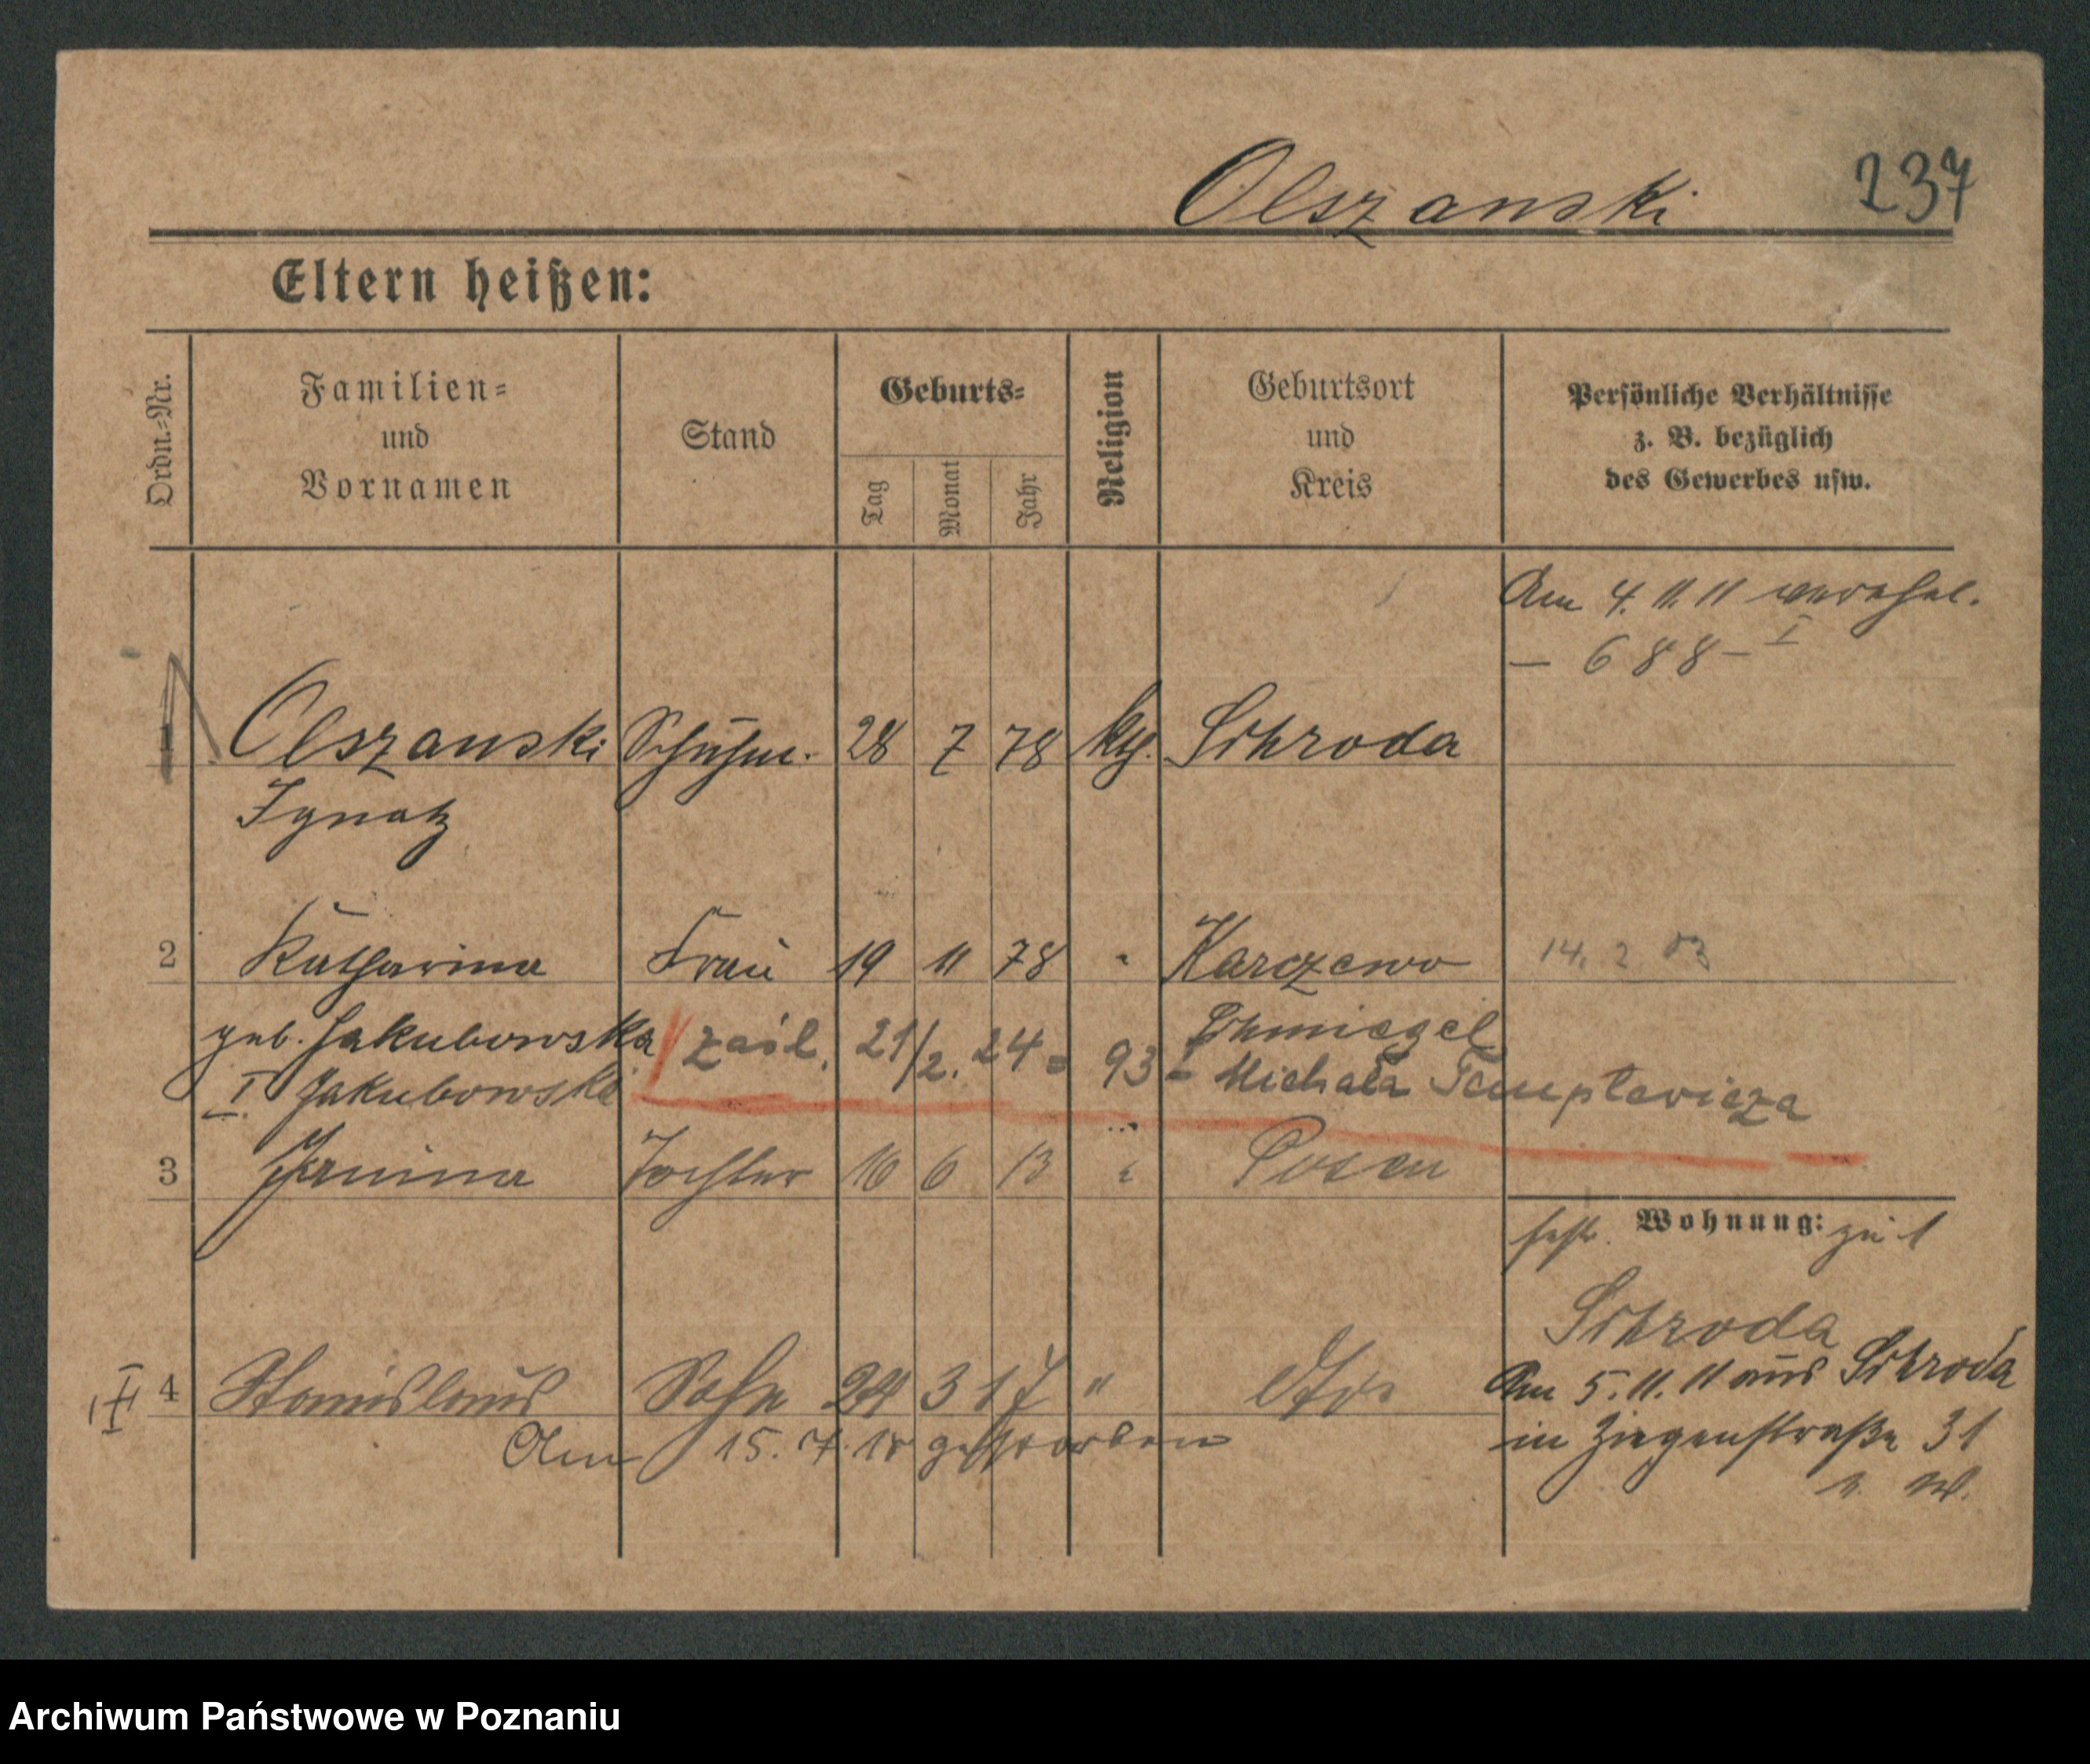 Olszanski 237
Eltern heißen:
Ordn.-Nr.
Familien-
und
Vornamen
Stand
Geburts-
Tag
Monat
Jahr
Religion
Geburtsort
und
Kreis
Persönliche Verhältnisse
z. B. bezüglich
des Gewerbes usw.
Am 4. 11. 11
— 688 — I
1 Olszanski Schuhm. 28 7 78 kth. Schroda
Ignatz
2 Katharina Frau 19 11 78 " Karczewo 14. 2 03
geb. Jakubowska Schmiegel
zaśl. 21/2. 24 = 93 - Michała Templewicza
I Jakubowski
3 Janina Tochter 16 6 13 " Posen
Wohnung: zu 1
Schroda
4 Stanislaus Sohn 24 3 17 " dto
Am 5. 11. 11 aus Schroda
Am 15. 7. 18 gestorben
in Ziegenstraße 31
Archiwum Państwowe w Poznaniu